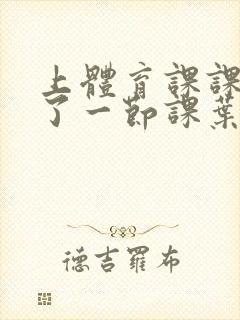 上體育課課
了一節課葉
德吉羅布